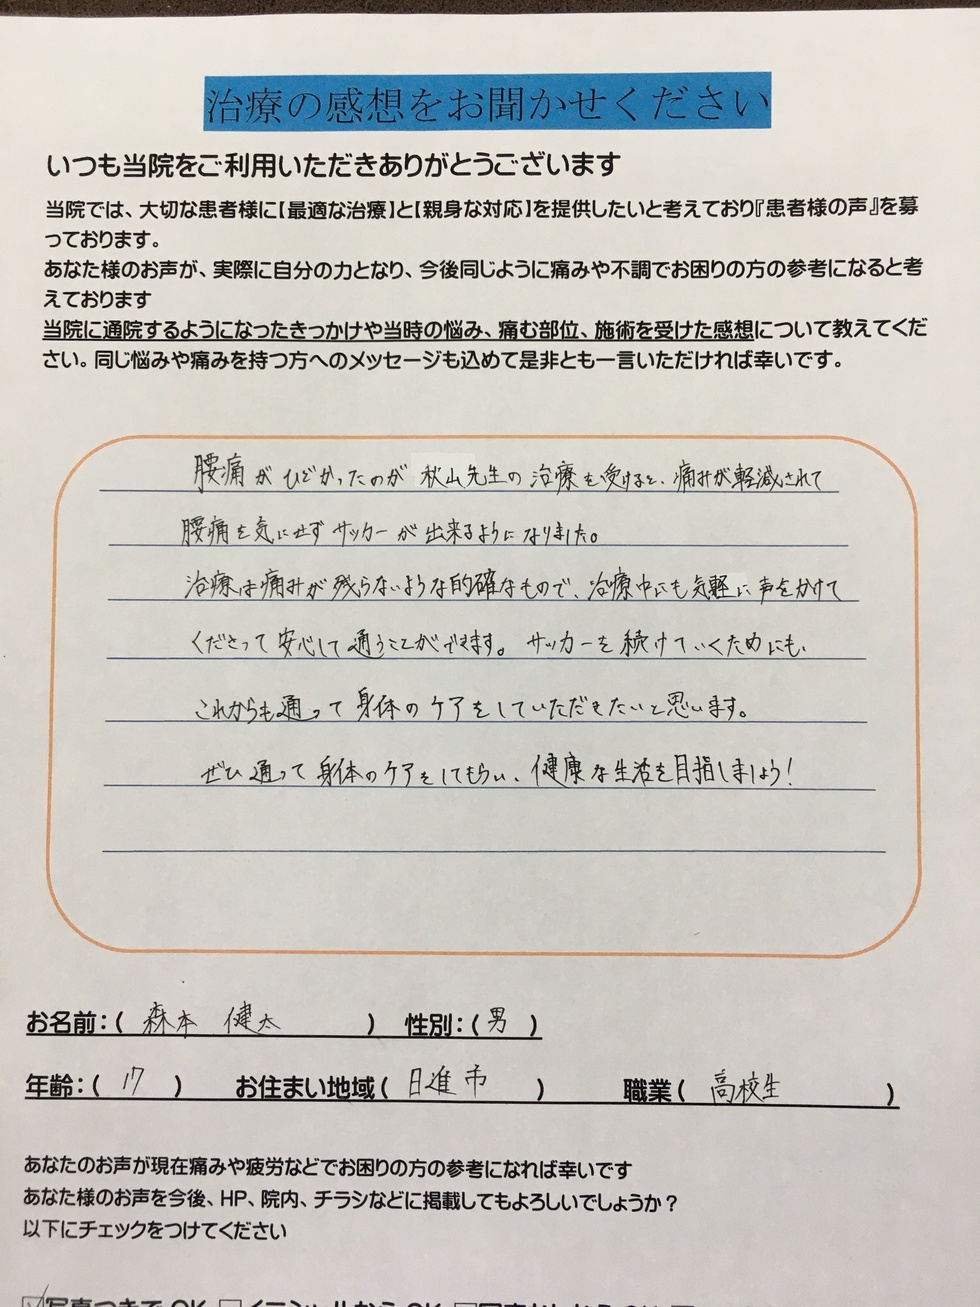 治療の感想をお聞かせください
いつも当院をご利用いただきありがとうございます
当院では、大切な患者様に【最適な治療】と【親身な対応】を提供したいと考えており『患者様の声』を募
っております。
あなた様のお声が、実際に自分の力となり、今後同じように痛みや不調でお困りの方の参考になると考
えております
当院に通院するようになったきっかけや当時の悩み、痛む部位、施術を受けた感想について教えてくだ
さい。同じ悩みや痛みを持つ方へのメッセージも込めて是非とも一言いただければ幸いです。
腰痛がひどかったのが秋山先生の治療を受けると、痛みが軽減されて
腰痛を気にせずサッカーが出来るようになりました。
治療は痛みが残らないような的確なもので、治療中にも気軽に声をかけて
くださって安心して通うことができます。サッカーを続けていくためにも
これからも通って身体のケアをしていただきたいと思います。
ぜひ通って身体のケアをしてもらい、健康な生活を目指しましょう!
お名前:( 森本 健太 ) 性別:( 男 )
年齢:( 17 ) お住まい地域( 日進市 ) 職業( 高校生 )
あなたのお声が現在痛みや疲労などでお困りの方の参考になれば幸いです
あなた様のお声を今後、HP、院内、チラシなどに掲載してもよろしいでしょうか?
以下にチェックをつけてください
写真つきでOK イニシャルならOK